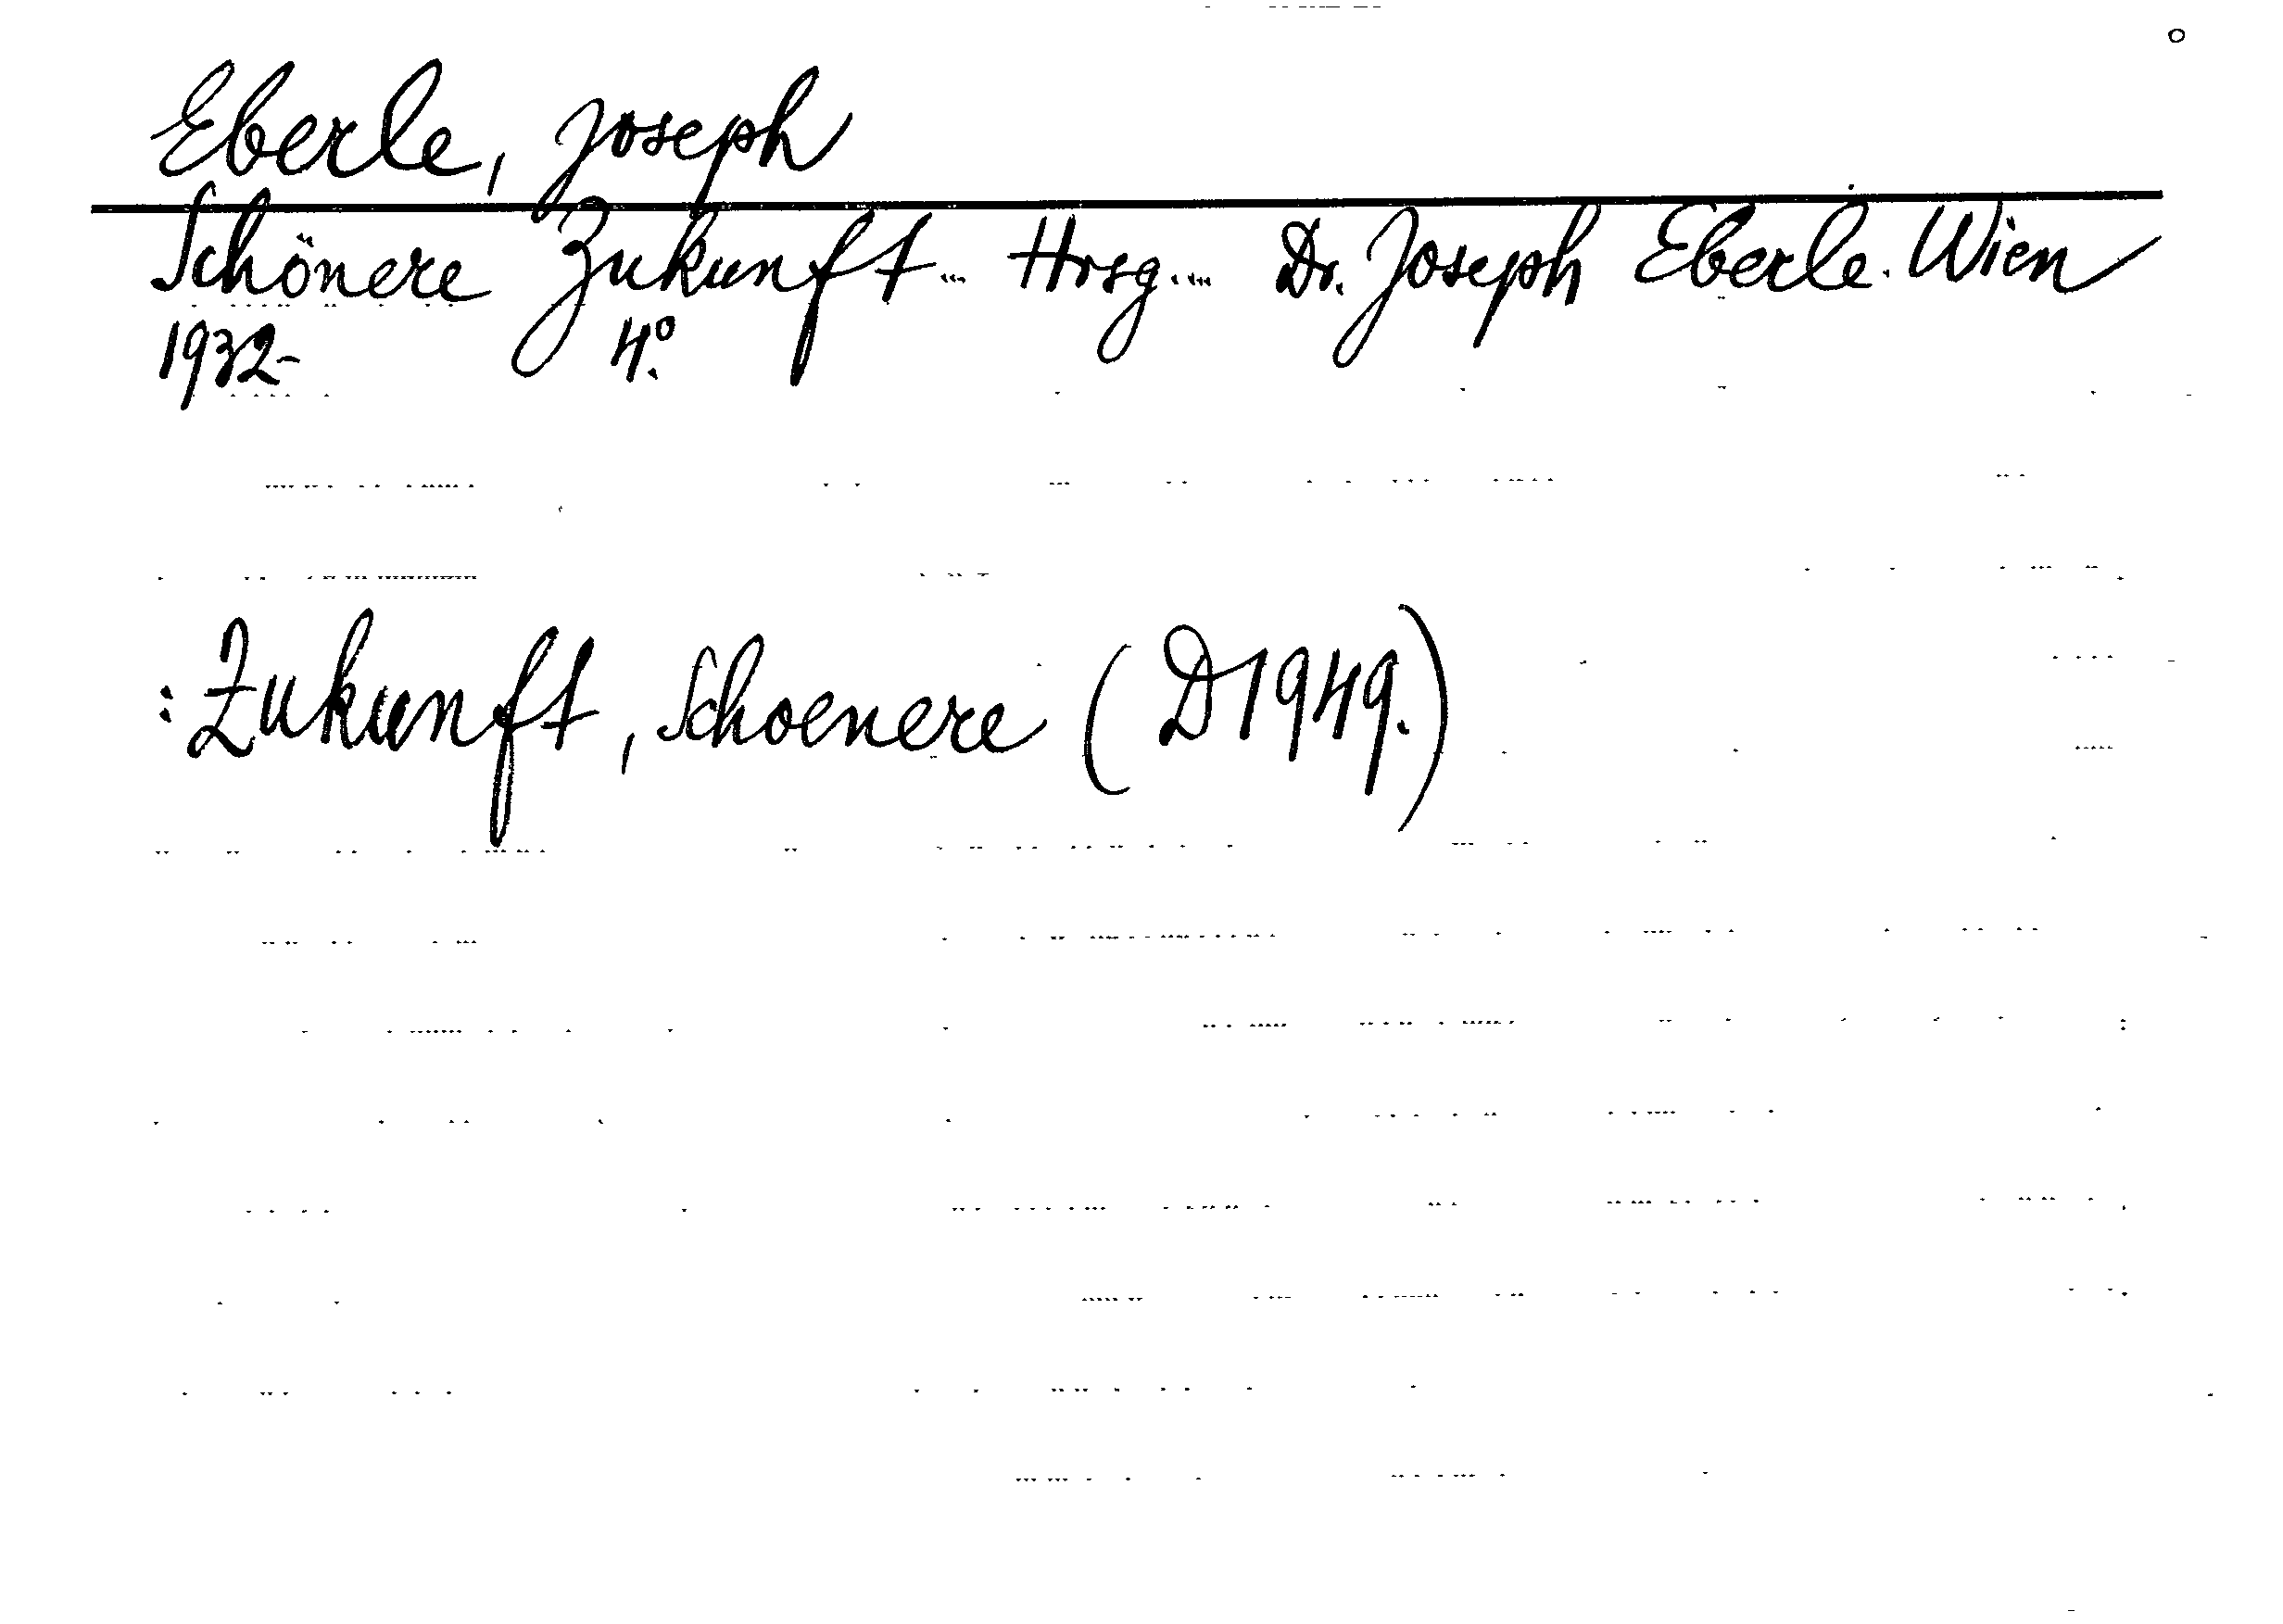 Eberle, Joseph
Schönere Zukunft... Hrsg.... Dr. Joseph Eberle. Wien
1932- 4°.
: Zukunft, Schoenere (D1949.)